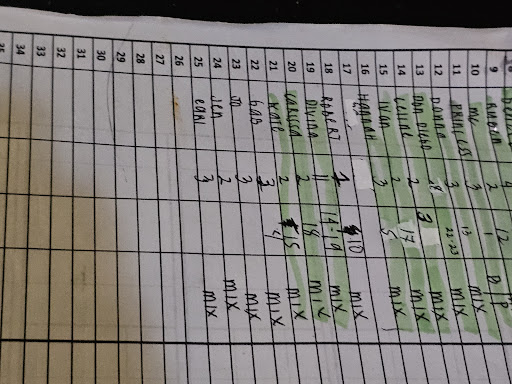 9 RUBEN 2 12
10 MC 3 1 MIX
11 PRINCESS 3 13 MIX
12 DONNA 3 22-23 MIX
13 DON DIEGO 2 3 MIX
14 CELINE 2 17 MIX
15 IVAN 3 5 MIX
16 HANNAH 10 MIX
17
18 ROBERT 1 14-19 MIX
19 DIVINA 11 18 MIX
20 CARISSA 2 5 MIX
21 KATE 2 4 MIX
22 BAB 3 MIX
23 JO 3 MIX
24 JEN 2 MIX
25 EARL 3 MIX
26
27
28
29
30
31
32
33
34
35